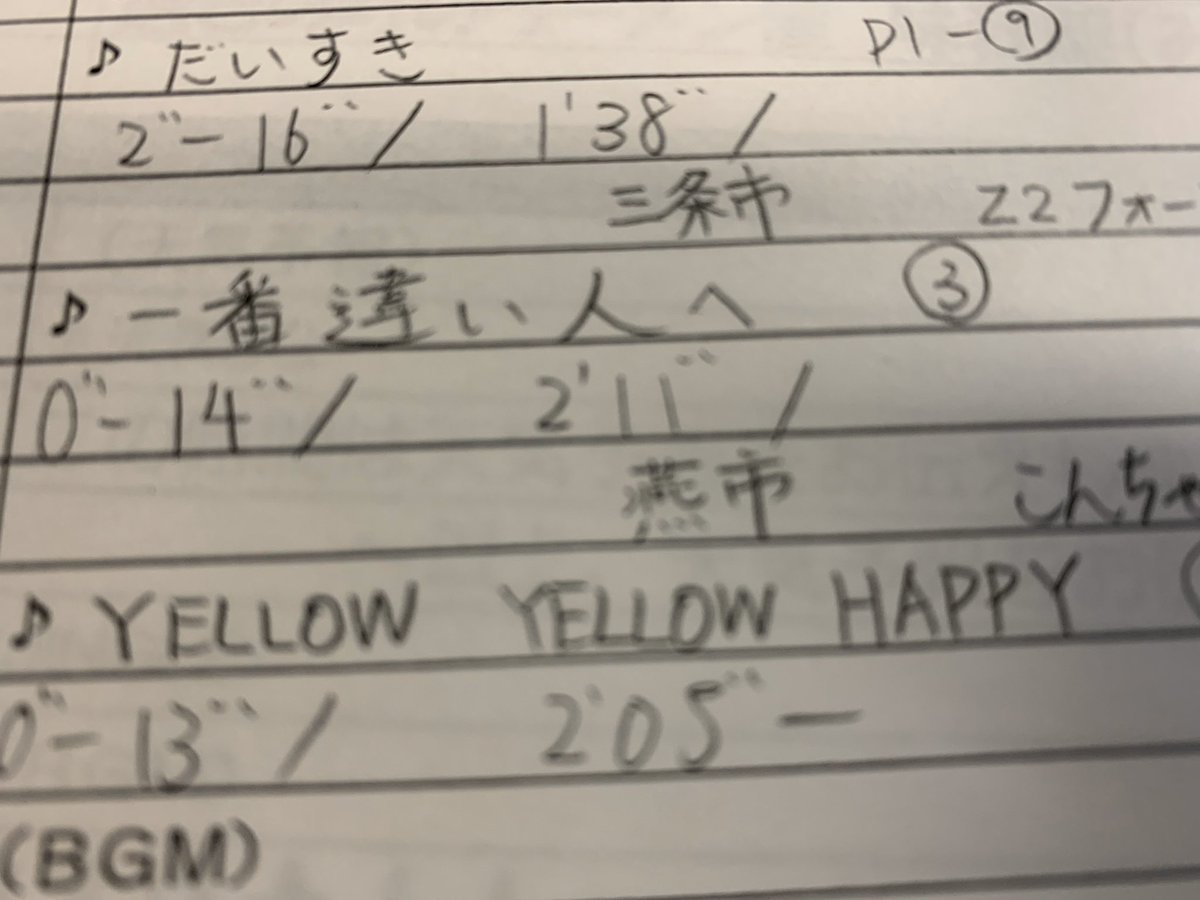 ♪ だいすき D1-⑨
2"-16" / 1'38" /
三条市 Z27オー
♪ 一番違い人へ ③
0"-14" / 2'11" /
燕市 こんちゃ
♪ YELLOW YELLOW HAPPY
0"-13" / 2'05" ー
(BGM)